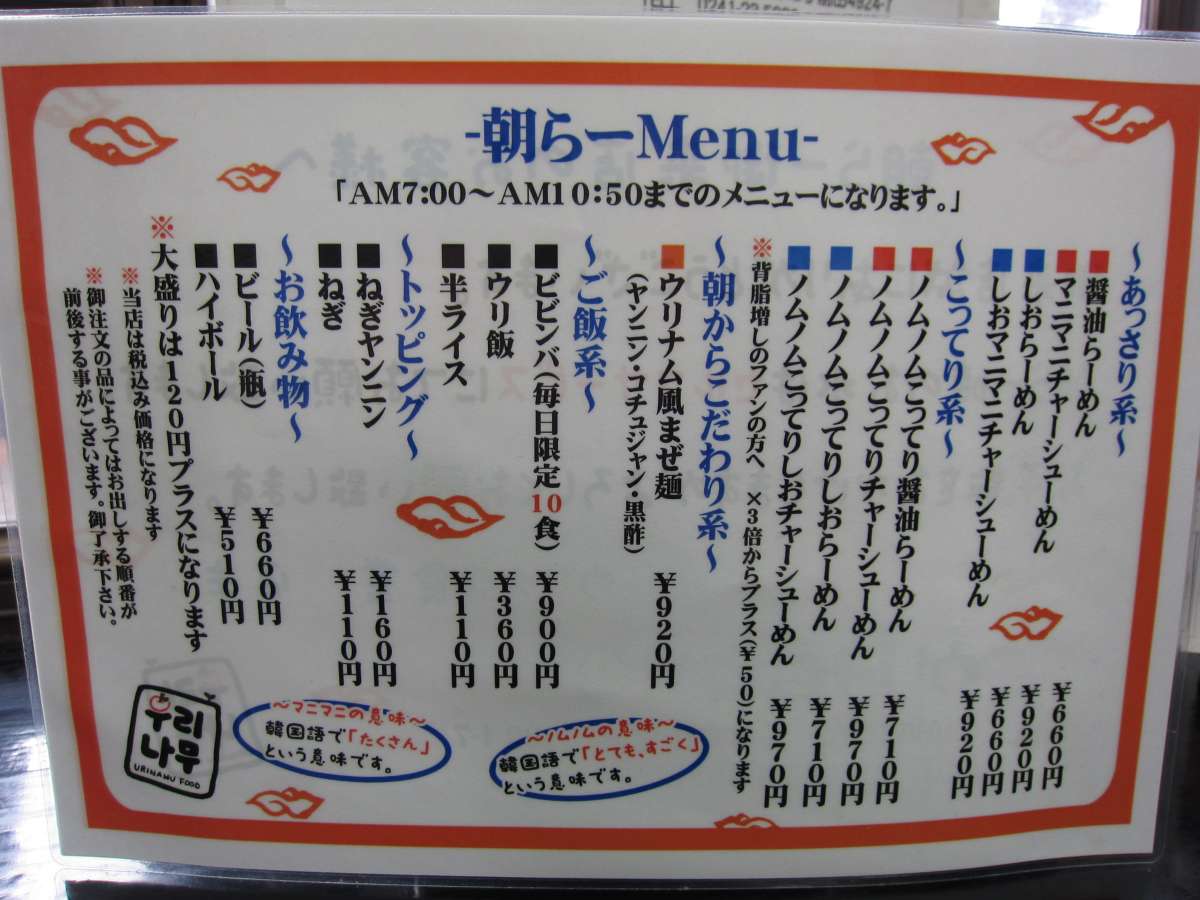 -朝らーMenu-
「AM7:00～AM10:50までのメニューになります。」
～あっさり系～
■醤油らーめん ￥660円
■マニマニチャーシューめん ￥920円
■しおらーめん ￥660円
■しおマニマニチャーシューめん ￥920円
～こってり系～
■ノムノムこってり醤油らーめん ￥710円
■ノムノムこってりチャーシューめん ￥970円
■ノムノムこってりしおらーめん ￥710円
■ノムノムこってりしおチャーシューめん ￥970円
※背脂増しのファンの方へ ×3倍からプラス(￥50)になります
～朝からこだわり系～
■ウリナム風まぜ麺 ￥920円
(ヤンニン・コチュジャン・黒酢)
～ご飯系～
■ビビンバ(毎日限定10食) ￥900円
■ウリ飯 ￥360円
■半ライス ￥110円
～トッピング～
■ねぎヤンニン ￥160円
■ねぎ ￥110円
～お飲み物～
■ビール(瓶) ￥660円
■ハイボール ￥510円
※大盛りは120円プラスになります
※当店は税込み価格になります
※御注文の品によってはお出しする順番が
前後する事がございます。御了承下さい。
～ノムノムの意味～
韓国語で「とても、すごく」
という意味です。
～マニマニの意味～
韓国語で「たくさん」
という意味です。
우리
나무
URINAMU FOOD